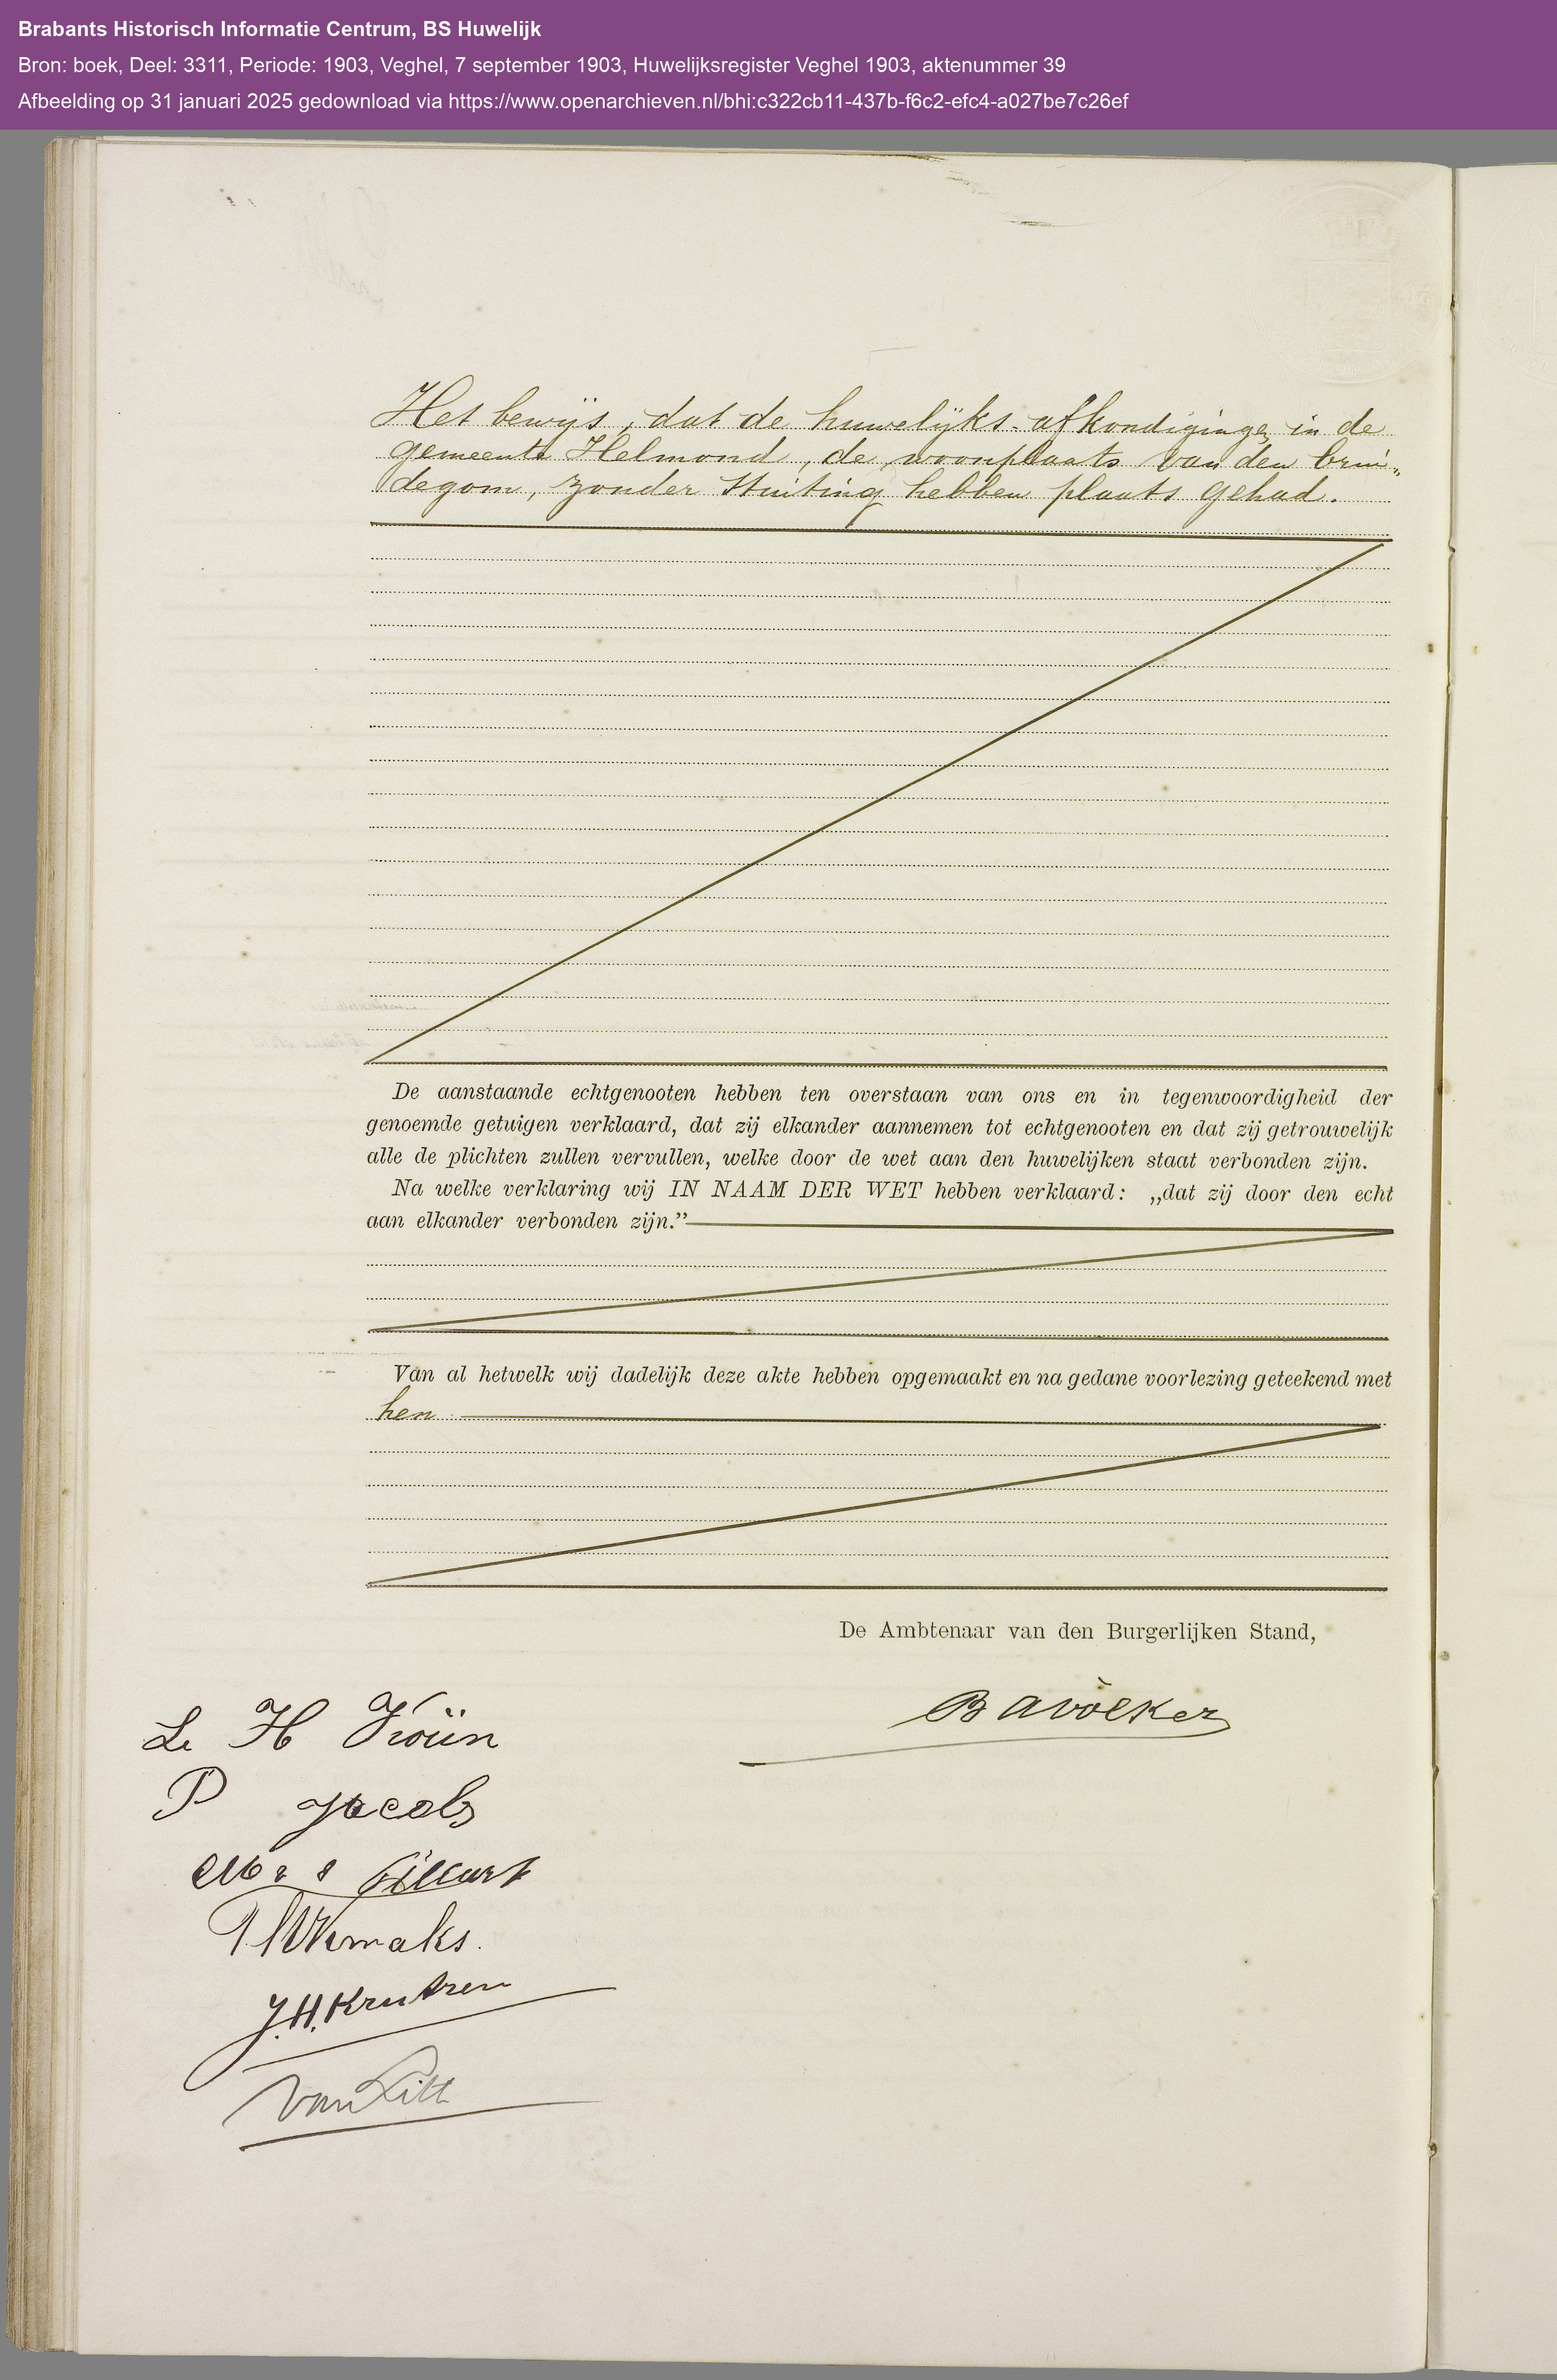 Brabants Historisch Informatie Centrum, BS Huwelijk
Bron: boek, Deel: 3311, Periode: 1903, Veghel, 7 september 1903, Huwelijksregister Veghel 1903, aktenummer 39
Afbeelding op 31 januari 2025 gedownload via https://www.openarchieven.nl/bhi:c322cb11-437b-f6c2-efc4-a027be7c26ef
Het bewijs, dat de huwelijks-afkondigingen in de
gemeente Helmond, de woonplaats van den brui„
degom, zonder stuiting hebben plaats gehad.
De aanstaande echtgenooten hebben ten overstaan van ons en in tegenwoordigheid der
genoemde getuigen verklaard, dat zij elkander aannemen tot echtgenooten en dat zij getrouwelijk
alle de plichten zullen vervullen, welke door de wet aan den huwelijken staat verbonden zijn.
Na welke verklaring wij IN NAAM DER WET hebben verklaard: „dat zij door den echt
aan elkander verbonden zijn.”
Van al hetwelk wij dadelijk deze akte hebben opgemaakt en na gedane voorlezing geteekend met
hen
De Ambtenaar van den Burgerlijken Stand,
B A Völker
H
P Jacobs
J.H. Krutzen
van Litt